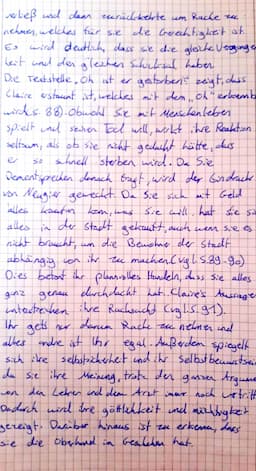 verließ und dann zurückkehrte um Rache zu
nehmen, welches für sie die Gerechtigkeit ist.
Es wird deutlich, dass sie die gleiche Vergangen-
heit und den gleichen Schicksal haben
Die Textstelle „Oh er ist gestorben" zeigt, dass
Claire erstaunt ist, welches mit dem „Oh" erkennb
wird S. 88). Obwohl Sie mit Menschenleben
spielt und seinen Tod will, wirkt ihre Reaktion
seltsam, als ob sie nicht gedacht hätte, dass
er so schnell sterben wird. Da Sie
Dementsprechen danach fragt, wird der Eindruck
von Neugier geweckt. Da sie sich mit Geld
alles kaufen kann, was Sie will hat sie si
alles in der Stadt gekauft, auch wenn sie es
nicht braucht, um die Bewohner der Stadt
abhängig von ihr zu machen (vgl. S. 89-90)
Dies betont ihr planvolles Handeln, dass sie alles
ganz genau durchdacht hat. Claire's Aussagen
unterstreichen ihre Rachsucht (vgl. S. 91).
Ihr gehts nur darum Rache zu nehmen und
alles andre ist Ihr egal. Außerdem spiegelt
sich ihre selbstsicherheit und ihr Selbstbewusstsein
da sie ihre Meinung, trotz den ganzen Argume
von den Lehrer und dem Arzt nach
Dadurch wird ihre göttlichkeit und mächtigkeit
gezeigt. Darüber hinaus ist zu erkennen, dass
sie die Oberhand im Geschehen hat.